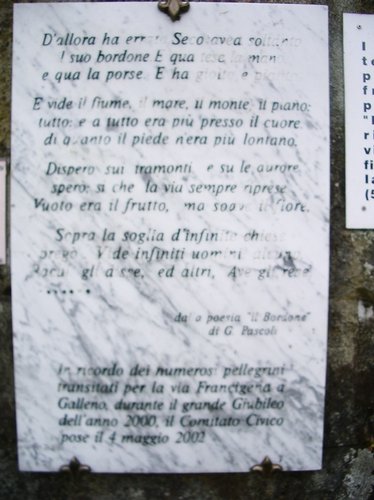 D'allora ha errato. Seco avea soltanto
il suo bordone E qua tese la mano
e qua la porse. E ha gioito e pianto.
E vide il fiume, il mare, il monte, il piano;
tutto; e a tutto era più presso il cuore
di quanto il piede n'era più lontano.
Disperò sui tramonti e su le aurore
sperò: sì che la via sempre riprese
Vuoto era il frutto, ma soave il fiore.
Sopra la soglia d'infinite chiese
pregò. Vide infiniti uomini
gli disse, ed altri, Ave gli rese
......
dalla poesia "Il Bordone"
di G. Pascoli
In ricordo dei numerosi pellegrini
transitati per la via Francigena a
Galleno, durante il grande Giubileo
dell'anno 2000, il Comitato Civico
pose il 4 maggio 2002